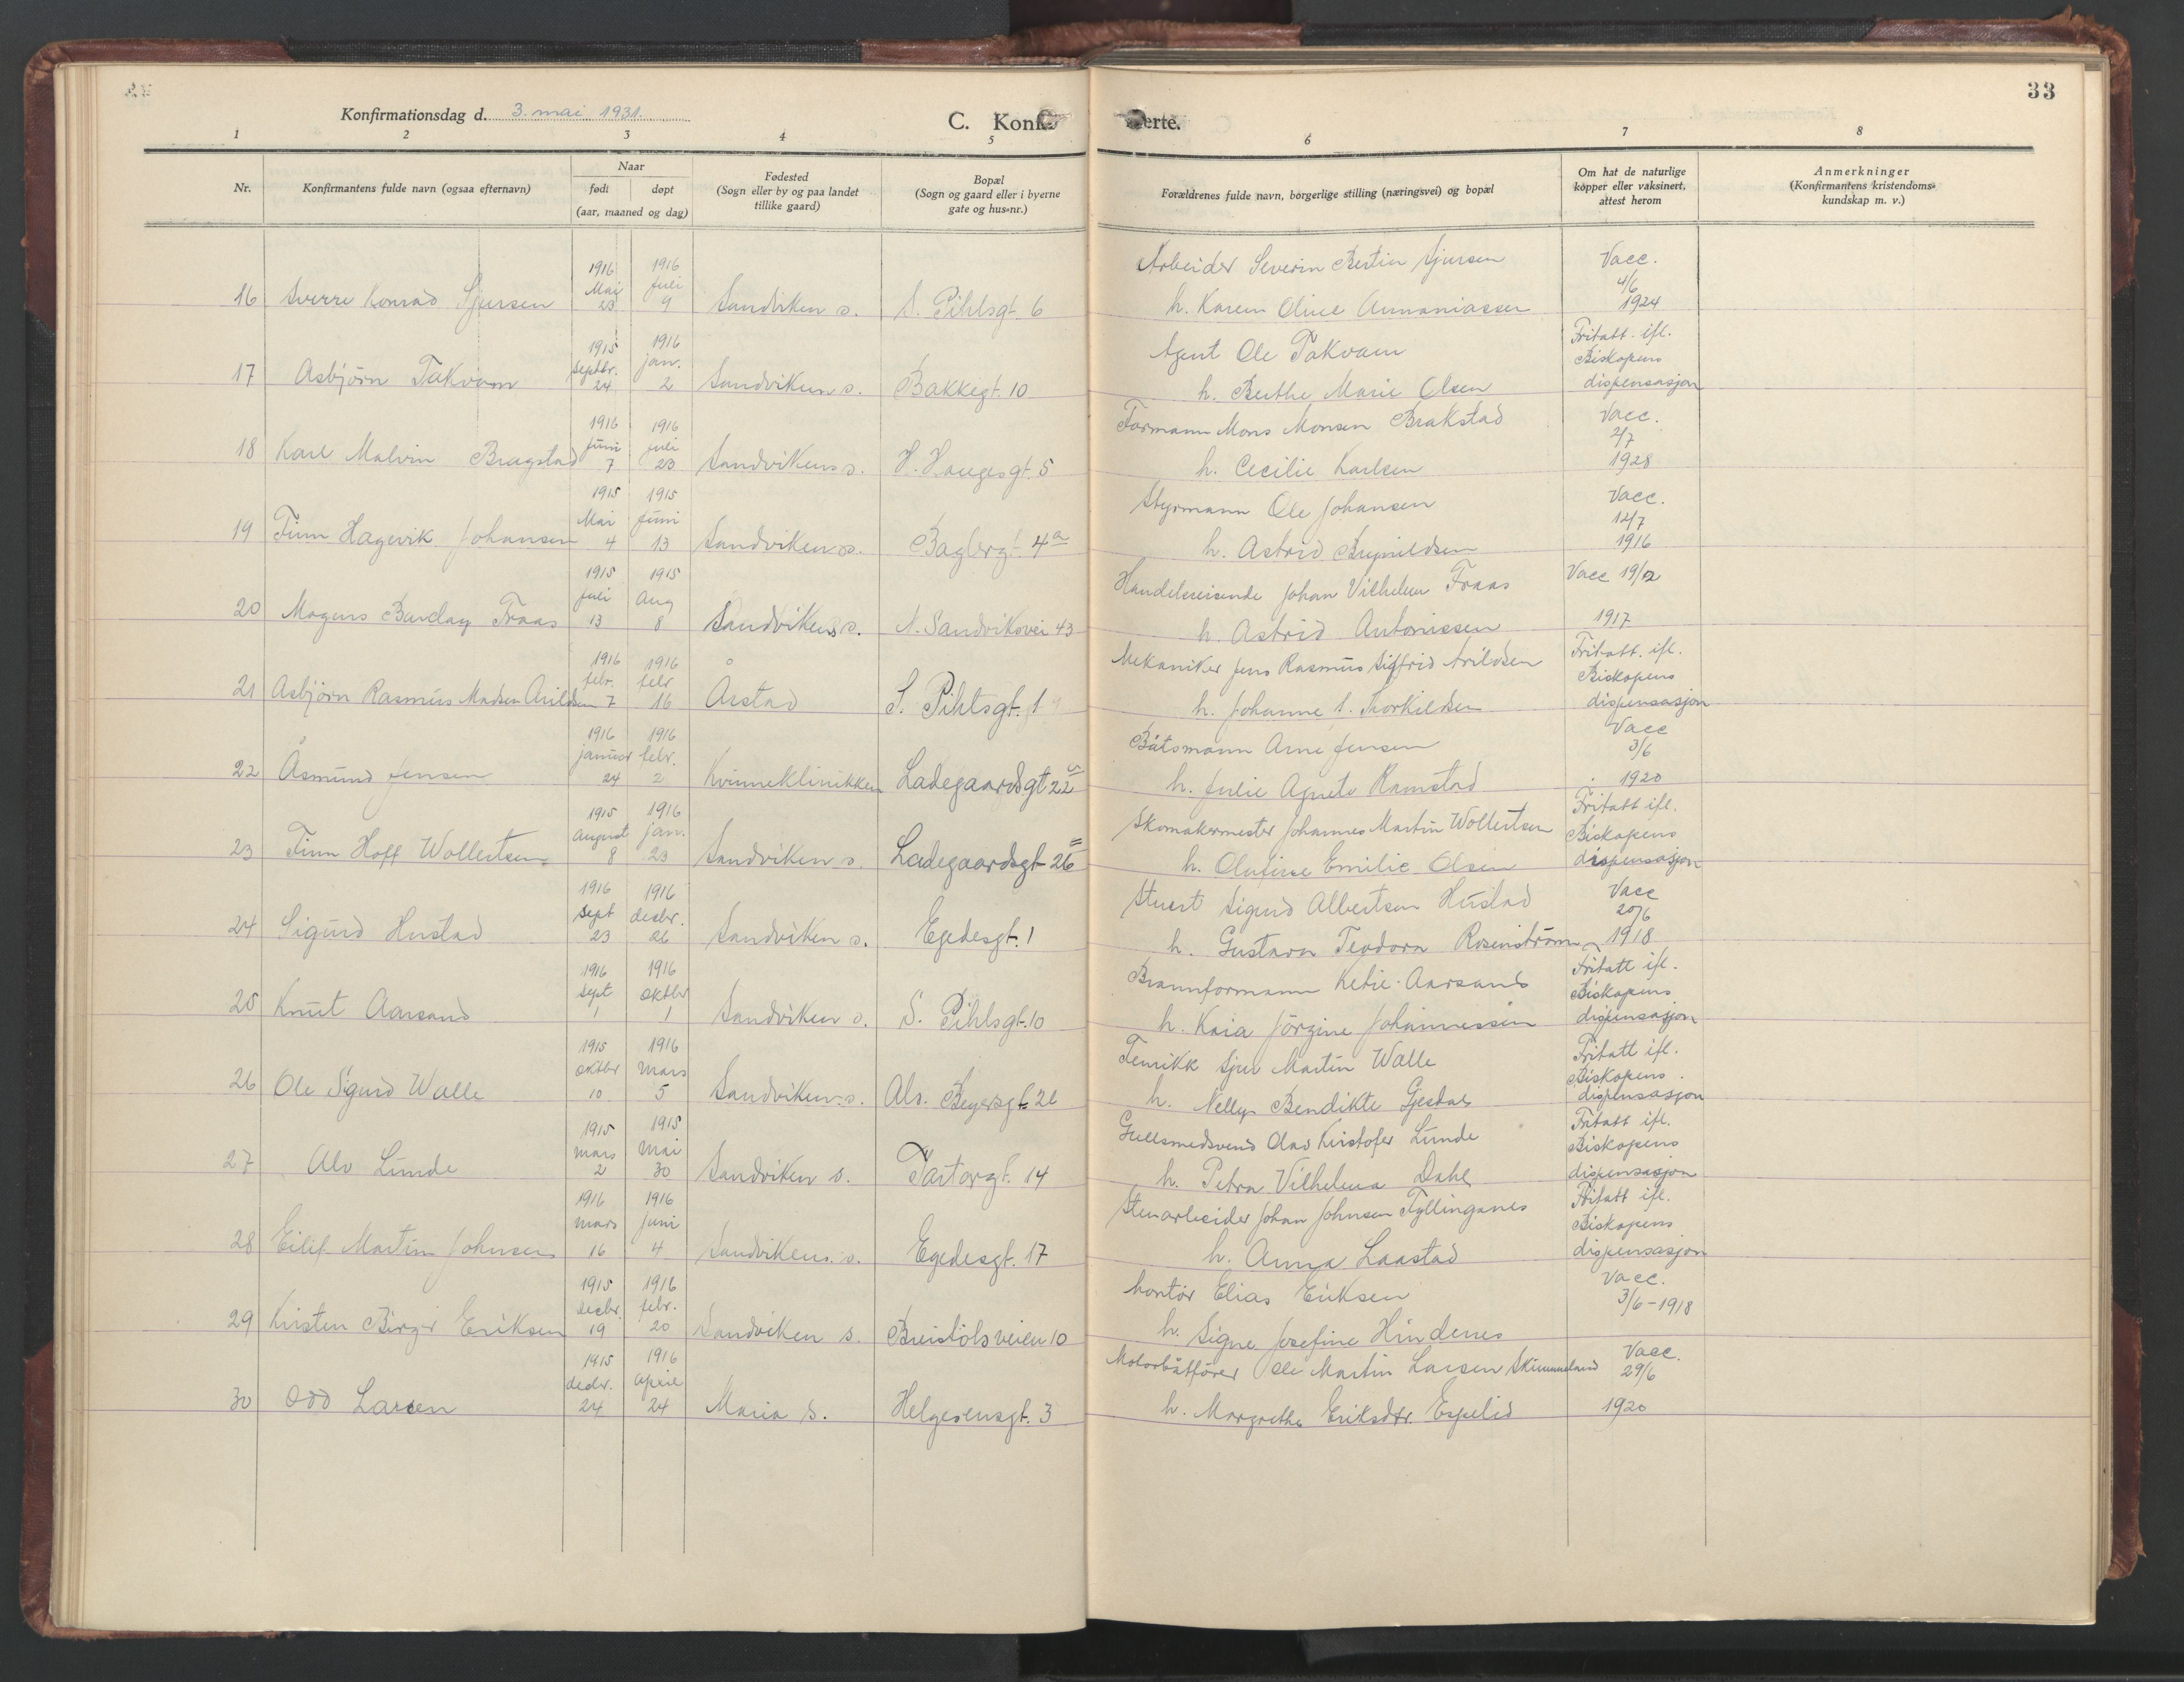 33
Konfirmationsdag d. 3. mai 1931.
C. Konf erte.
1 2 3 4 5 6 7 8
Nr.
Konfirmantens fulde navn (ogsaa efternavn)
Naar
født døpt
(aar, maaned og dag)
Fødested
(Sogn eller by og paa landet
tillike gaard)
Bopæl
(Sogn og gaard eller i byerne
gate og hus-nr.)
Forældrenes fulde navn, borgerlige stilling (næringsvei) og bopæl
Om hat de naturlige
kopper eller vaksinert,
attest herom
Anmerkninger
(Konfirmantens kristendoms-
kundskap m. v.)
1916 1916 Arbeider Severin Bertin Sjursen Vacc.
Mai Juli 4/6
16 Sverre Konrad Sjursen 23 9 Sandviken s. S. Pihlsgt. 6 h. Karen Oline Annaniassen 1924
1915 1916 Agent Ole Takvam Fritatt. ifl.
Septbr. jan. Biskopens
17 Asbjörn Takvam 24 2 Sandviken s. Bakkegt. 10 h. Berthe Marie Olsen dispensasjon
1916 1916 Formann Mons Monsen Brakstad Vacc.
Juni juli 2/7
18 Karl Malvin Bragstad 7 23 Sandviken s. H. Haugesgt. 5 h. Cecilie Karlsen 1928
1915 1915 Styrmann Ole Johansen Vacc.
Mai Juni 12/7
19 Finn Hagevik Johansen 4 13 Sandviken s. Baglergt. 4a h. Astrid Brynildsen 1916
1915 1915 Handelsreisende Johan Vilhelm Fraas Vacc 19/12
juli Aug
20 Mogens Barclay Fraas 13 8 Sandviken s. N. Sandviksvei 43 h. Astrid Antonissen 1917
1916 1916 Mekaniker Jens Rasmus Sigfrid Arildsen Fritatt. ifl.
febr. febr Biskopens
21 Asbjörn Rasmus Madsen Arildsen 7 16 Årstad S. Pihlsgt. 19 h. Johanne S. Thorkildsen dispensasjon
1916 1916 Båtsmann Arne Jensen Vacc
januar febr. 3/6
22 Åsmund Jensen 24 2 Kvinneklinikken Ladegaardsgt 22 h. Julie Agnete Ramstad 1920
1915 1916 Skomakermester Johannes Martin Wollertsen Fritatt ifl.
August jan. Biskopens
23 Finn Hoff Wollertsen 8 23 Sandviken s. Ladegaardsgt 26 h. Olufine Emilie Olsen dispensasjon
1916 1916 Stuert Sigurd Albertsen Hustad Vacc
Sept decbr. 20/6
24 Sigurd Hustad 23 26 Sandviken s. Egedesgt. 1 h. Gustava Teodora Rosenström 1918
1916 1916 Brannformann Ketil Aarsand Fritatt ifl.
Sept oktbr Biskopens
25 Knut Aarsand 1 1 Sandviken s. S. Pihlsgt. 10 h. Kaia Jörgine Johannessen dispensasjon
1915 1916 Fenrikk Sjur Martin Walle Fritatt ifl.
oktbr Mars Biskopens
26 Ole Sigurd Walle 10 5 Sandviken s. Abs. Beyersgt 2 h. Nelly Bendikte Gjesdal dispensasjon
1915 1915 Gullsmedsvend Olav Kristofer Lunde Fritatt ifl.
mars Mai Biskopens
27 Alv Lunde 2 30 Sandviken s. Tartargt. 14 h. Petra Vilhelma Dahl dispensasjon
1916 1916 Stenarbeider Johan Johnsen Tyllingsnes Fritatt ifl.
Mars Juni Biskopens
28 Eilif Martin Johnsen 16 4 Sandviken s. Egedesgt. 17 h. Anna Laastad dispensasjon
1915 1916 Kontör Elias Eriksen Vacc.
decbr. febr. 3/6-1918
29 Kristen Birger Eriksen 19 20 Sandviken s. Breistölsveien 10 h. Signe Josefine Hindenes
1915 1916 Motorbåtförer Ole Martin Larsen Skimmeland Vacc.
decbr. April 29/6
30 Odd Larsen 24 24 Maria s. Helgesensgt. 3 h. Margrethe Eriksdtr. Espelid 1920